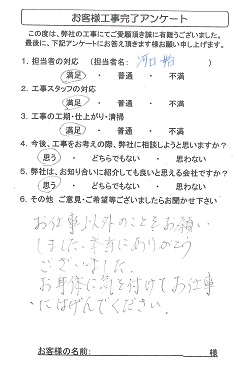 お客様工事完了アンケート
この度は、弊社の工事にてご愛顧頂き誠に有難うございました。
最後に、下記アンケートにお答え頂きます様お願い申し上げます。
1. 担当者の対応 (担当者名: 河口 )
満足 ・ 普通 ・ 不満
2. 工事スタッフの対応
満足 ・ 普通 ・ 不満
3. 工事の工期・仕上がり・清掃
満足 ・ 普通 ・ 不満
4. 今後、工事をお考えの際、弊社に相談しようと思いますか?
思う ・ どちらでもない ・ 思わない
5. 弊社は、お知り合いに紹介しても良いと思える会社ですか?
思う ・ どちらでもない ・ 思わない
6. その他 ご意見・ご希望等ございましたらお聞かせ下さい
お仕事以外のことをお願い
しました。本当にありがとう
ございました。
お身体に気を付けてお仕事
にはげんでください。
お客様の名前: 様